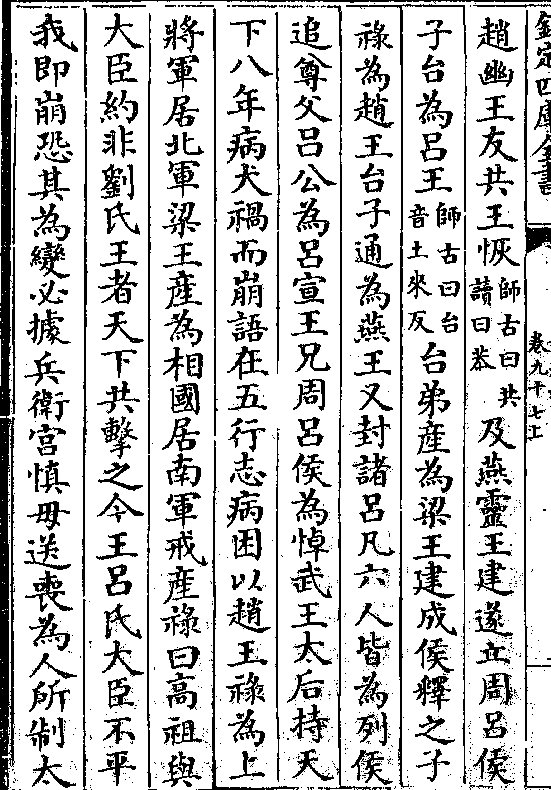 欽定四庫全書
卷九十七上
趙幽王友共王恢師古曰共讀曰恭及燕靈王建遂立周吕侯
子台為吕王師古曰台音土來反台弟產為梁王建成侯釋之子
祿為趙王台子通為燕王又封諸吕凡六人皆為列侯
追尊父吕公為吕宣王兄周吕侯為悼武王太后持天
下八年病犬禍而崩語在五行志病困以趙王祿為上
將軍居北軍梁王產為相國居南軍戒產祿曰高祖與
大臣約非劉氏王者天下共擊之今王吕氏大臣不平
我即崩恐其為變必據兵衛宫慎毋送喪為人所制太